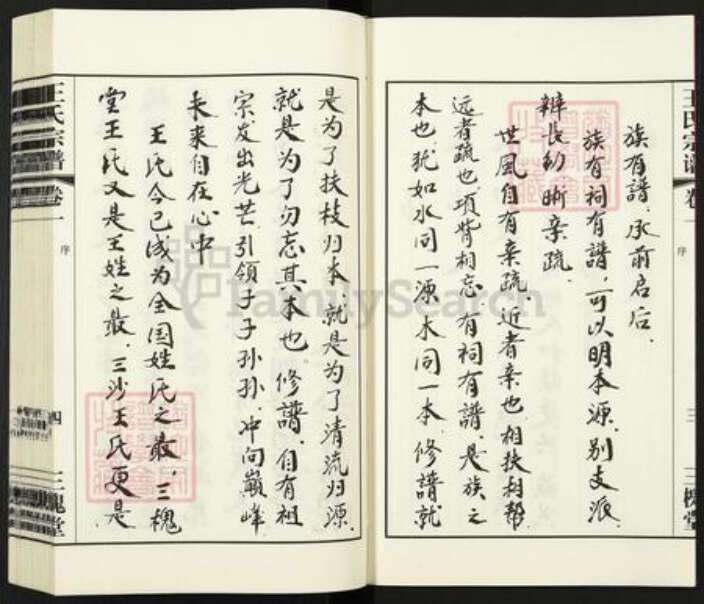 王氏宗谱 卷一 序 三 三槐堂
族有譜、承前启后.
族有祠有譜,可以明本源.别支派
辨長幼晰亲疏.
世風自有亲疏 近者亲也相扶相帮
远者疏也 项背相忘.有祠有譜.是族之
本也.犹如水同一源木同一本.修譜就
是为了扶枝归本.就是为了清流归源.
就是为了勿忘其本也.修譜.自有祖
宗发出光芒.引領子子孙孙.冲向巅峰
未来自在心中
王氏今已成为全国姓氏之最.三槐
堂王氏又是王姓之最.三沙王氏更是
王氏宗譜 卷一 序 四 三槐堂
FamilySearch